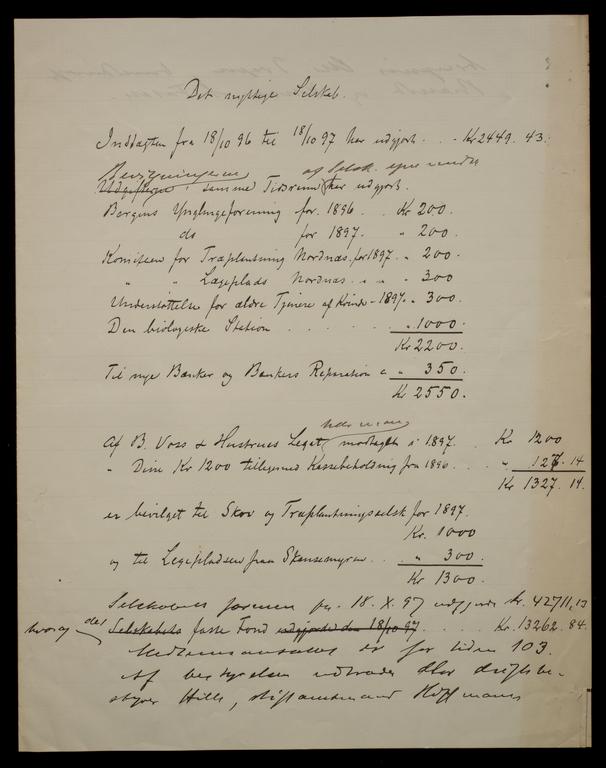 Det nyttige Selskab.
Indtægten fra 18/10 96 til 18/10 97 har udgjort . . - Kr 2449. 43.
Bevilgningerne af Selsk.
Udgifterne samme Tidsrum har udgjort.
Bergens Ynglingeforening for 1896 . . Kr 200.
do for 1897. " 200.
Komiteen for Træplantning Nordnæs. for 1897. " 200.
" " Legeplads Nordnæs . " " 300
Understøttelse for ældre Tjenere af Kvinde - 1897. " 300.
Den biologiske Station . . . . . . " 1000.
Kr 2200.
Til nye Bænker og Bænkers Reparation " 350.
Kr 2550.
Af B. Voss & Hustrues Legat, modtaget i 1897. . Kr 1200
" Disse Kr 1200 tilligemed Kassebeholdning fra 1896. . . " 127. 14
Kr 1327. 14.
er bevilget til Skov og Træplantningsselsk for 1897.
Kr. 1000
og til Legepladsen paa Skansemyren . . . " 300.
Kr 1300.
Selskabets formue pr. 18. X. 97 udgjorde Kr. 42711,13
hvoraf det Selskabets faste Fond udgjorde den 18/10 97 . . . Kr. 13262. 84.
Medlemsantallet er for tiden 103.
Af bestyrelsen udtræder d'Hrr driftsbe-
styrer Hille, stiftamtmand Hoffmann